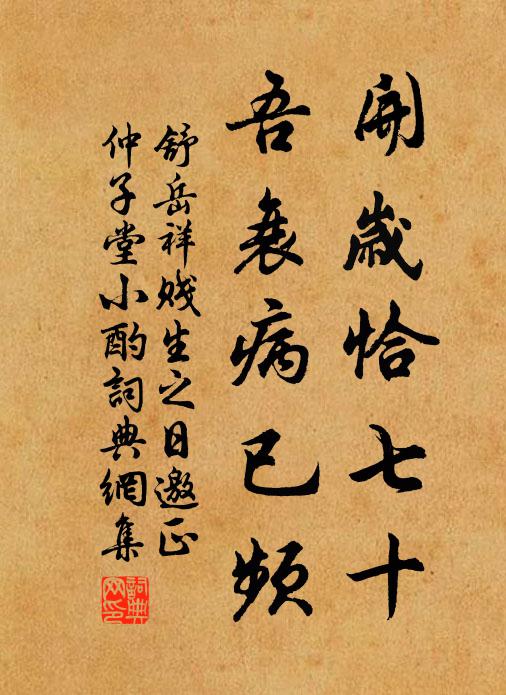 開歲恰七十
吾衰病已頻
舒岳祥賤生之日邀正
仲子堂小酌詞典網集
詞典
网印